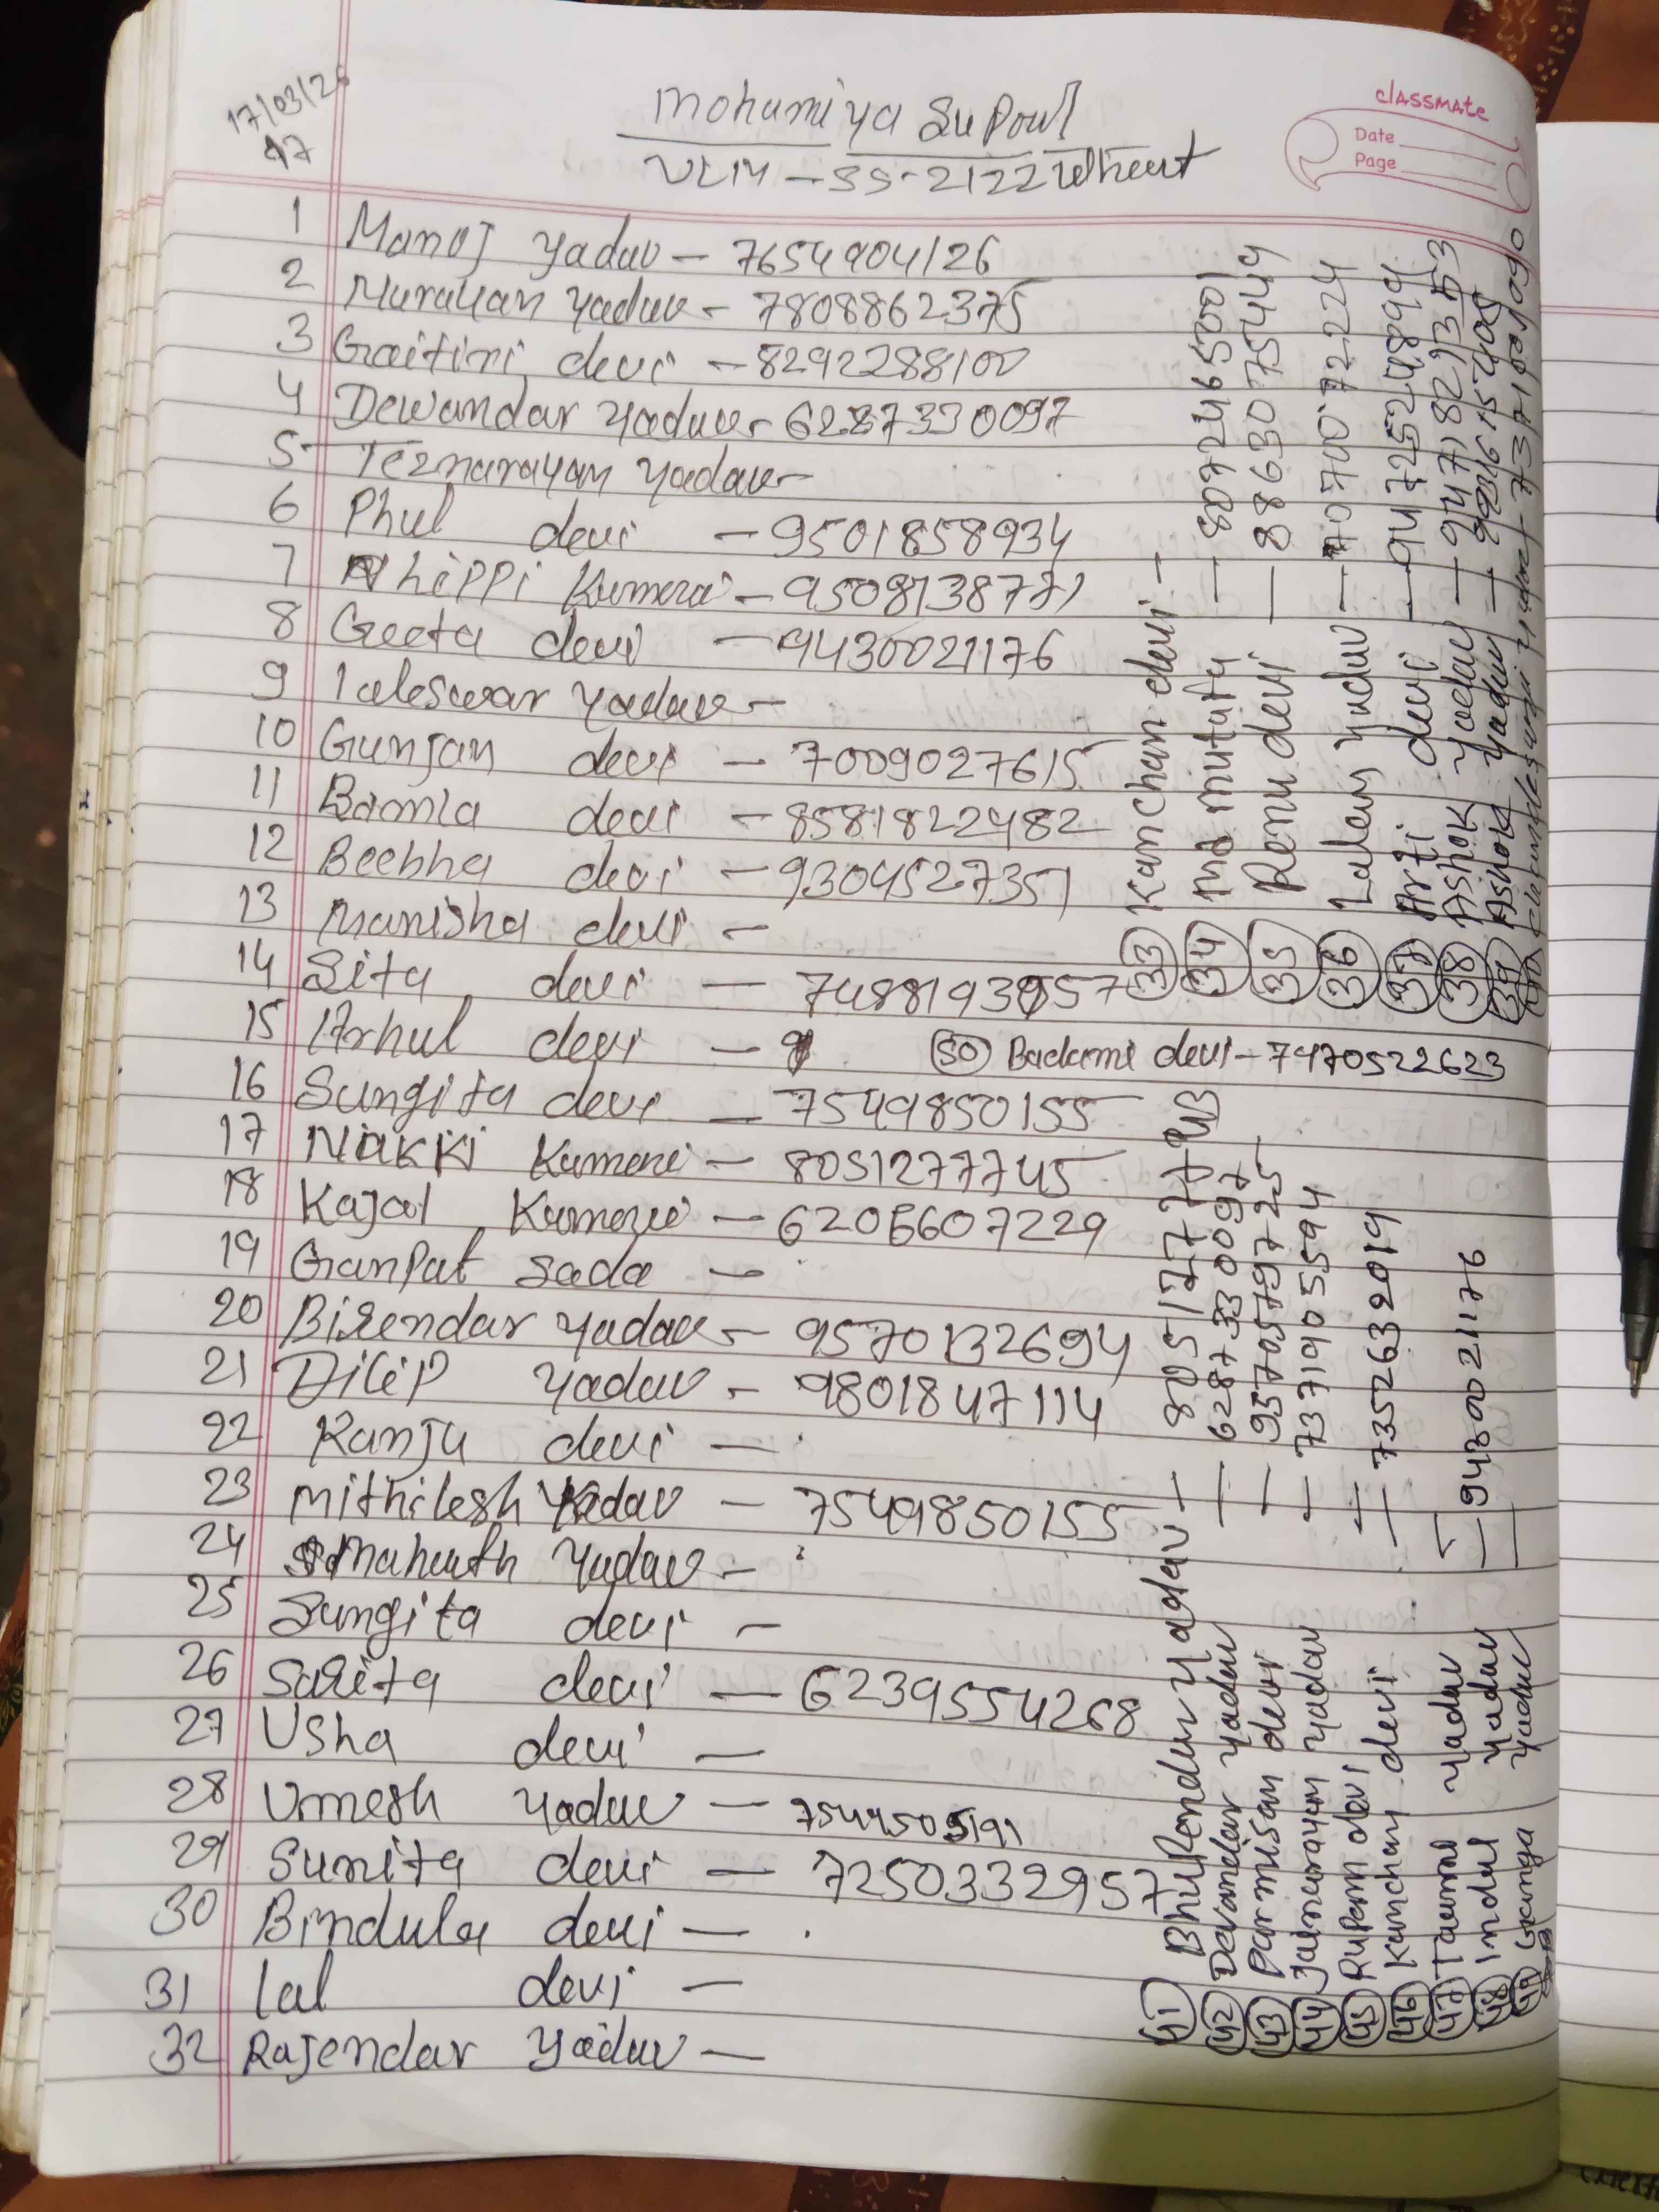 17/03/26
47
Mohamiya Supoul
classmate
Date
Page
1 Manoj Yadav - 7654904126
2 Narayan Yadav - 7808862375
3 Gaitini devi - 8292288100
4 Dewandar Yadav - 6287330097
5 Teznarayan Yadav -
6 Phul devi - 9501858934
7 Khippi Kumari - 9508138771
8 Geeta devi - 9430021176
9 laleswar Yadav -
10 Gunjan devi - 7009027615
11 Bamla devi - 8581822482
12 Beebha devi - 9304527351
13 Manisha devi -
14 Sita devi -
15 Arhul devi -
16 Sungita devi - 7549850155
17 Nikki Kumari - 8051277745
18 Kajal Kumari - 6205607229
19 Ganpat Sada -
20 Birendar Yadav - 9570132694
21 Dilip Yadav - 9801847114
22 Ranju devi -
23 Mithilesh Yadav - 7549850155
24 Yadav -
25 Sungita devi -
26 Sarita devi - 6239554268
27 Usha devi -
28 Umesh Yadav -
29 Sunita devi - 7250332957
30 Bindula devi -
31 lal devi -
32 Rajendar Yadav -
33 Kanchan devi -
34 md mutafa - 8072465001
35 Renu devi - 8863075449
36 Laleny Yadav - 7070072224
37 Arti devi - 9472524899
38 Ashok Yadav - 9471821353
39 Ashok Yadav -
40
50 Badami devi - 7470522623
41 Yadav -
42 Devandar Yadav - 6287330097
43 Parmisan devi - 9570579725
44 Jainarayan Yadav - 7371905594
45 Rupam devi -
46 Kanchan devi - 7352632019
47 Yadav -
48 Indal Yadav - 9430021176
49 Ganga Yadav -